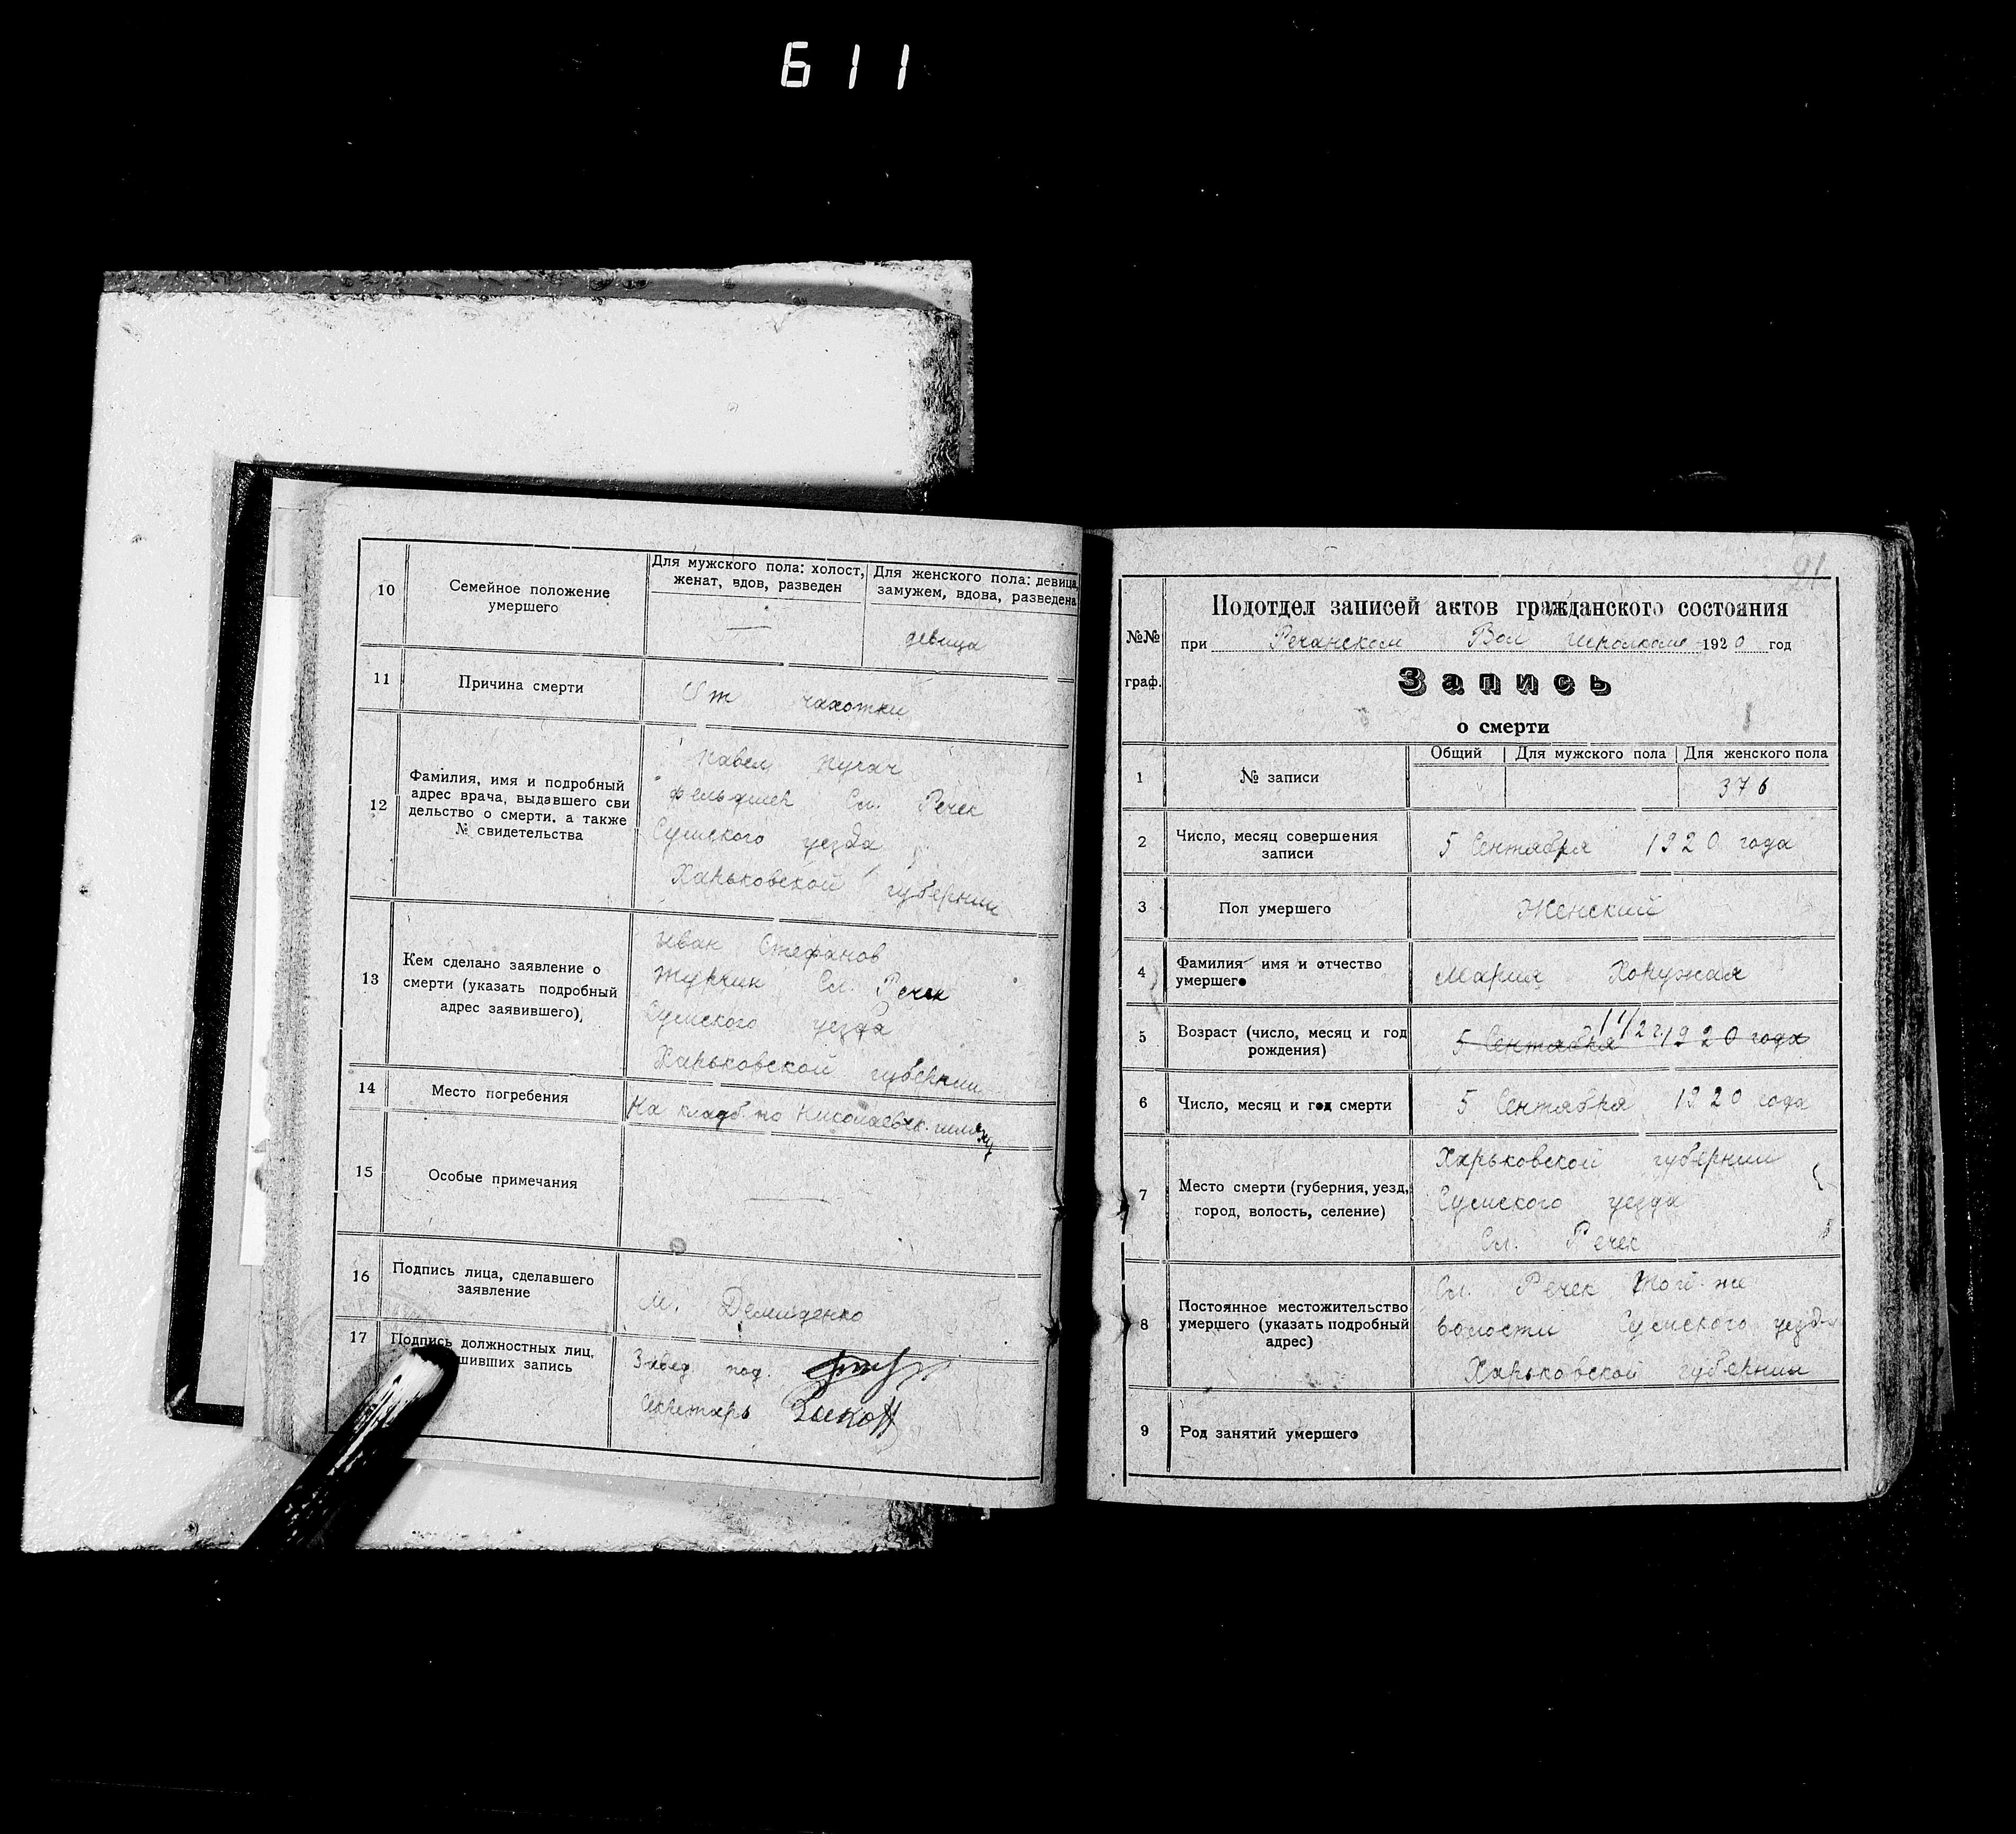 611
10
Семейное положение
умершего
Для мужского пола: холост,
женат, вдов, разведен
Для женского пола: девица,
замужем, вдова, разведена
—
девица
11
Причина смерти
От чахотки
12
Фамилия, имя и подробный
адрес врача, выдавшего сви
дельство о смерти. а также
№ свидетельства
Павел Пугач
фельдшер Сл. Речек
Сумского уезда
Харьковской губернии
13
Кем сделано заявление о
смерти (указать подробный
адрес заявившего).
Иван Стефанов
Сл. Речек
Сумского уезда
Харьковской губернии
14
Место погребения
На кладб. по Николаевск.
15
Особые примечания
—
16
Подпись лица, сделавшего
заявление
М. Демиденко
17
Подпись должностных лиц,
шивших запись
Завед. под.
Секретарь
91
№№
граф.
Подотдел записей актов гражданского состояния
при Речанском Вол Исполкоме 1920 год
Запись
о смерти
1
№ записи
Общий
Для мужского пола
Для женского пола
376
2
Число, месяц совершения
записи
5 Сентября 1920 года
3
Пол умершего
Женский
4
Фамилия имя и отчество
умершего
Мария Хоружая
5
Возраст (число, месяц и год
рождения)
5 Сентября 1920 года
6
Число, месяц и год смерти
5 Сентября 1920 года
7
Место смерти (губерния, уезд,
город, волость, селение)
Харьковской губернии
Сумского уезда
Сл. Речек
8
Постоянное местожительство
умершего (указать подробный
адрес)
Сл. Речек той-же
волости Сумского уезда
Харьковской губернии
9
Род занятий умершего